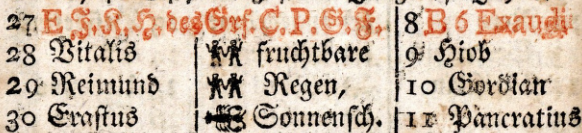 27 E. F. K. H. des Erf. C. P. G. F. 8 B 6 Exaudi
28 Vitalis fruchtbare 9 Hiob
29 Reimund Regen, 10 Gordian
30 Erastus Sonnensch. 11 Pancratius